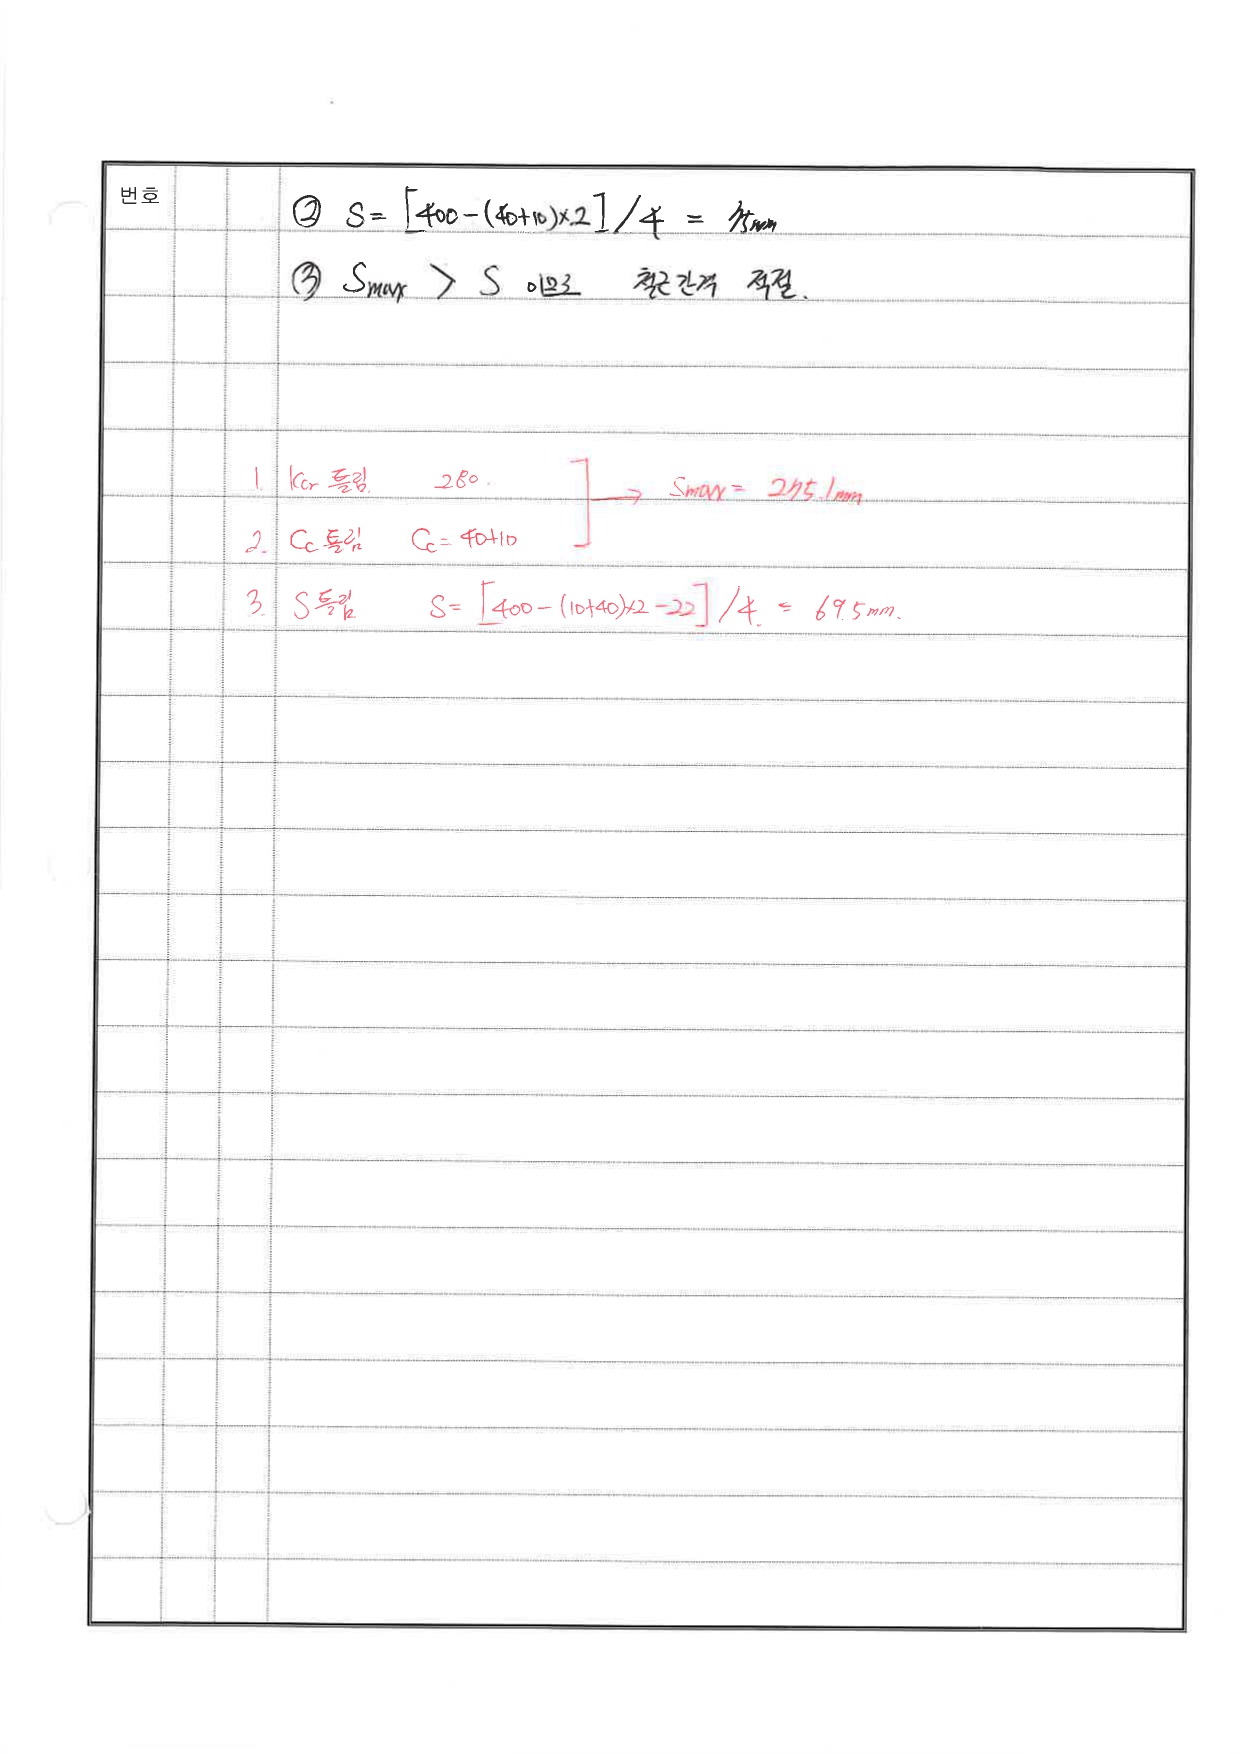 번호
② S = [400-(40+10)×2]/4 = 75mm
③ Smax > S 이므로 철근간격 적절.
1. Kcr 틀림. 280. → Smax = 275.1mm
2. Cc 틀림 Cc = 40+10
3. S 틀림 S = [400-(10+40)×2-22]/4 = 69.5mm.